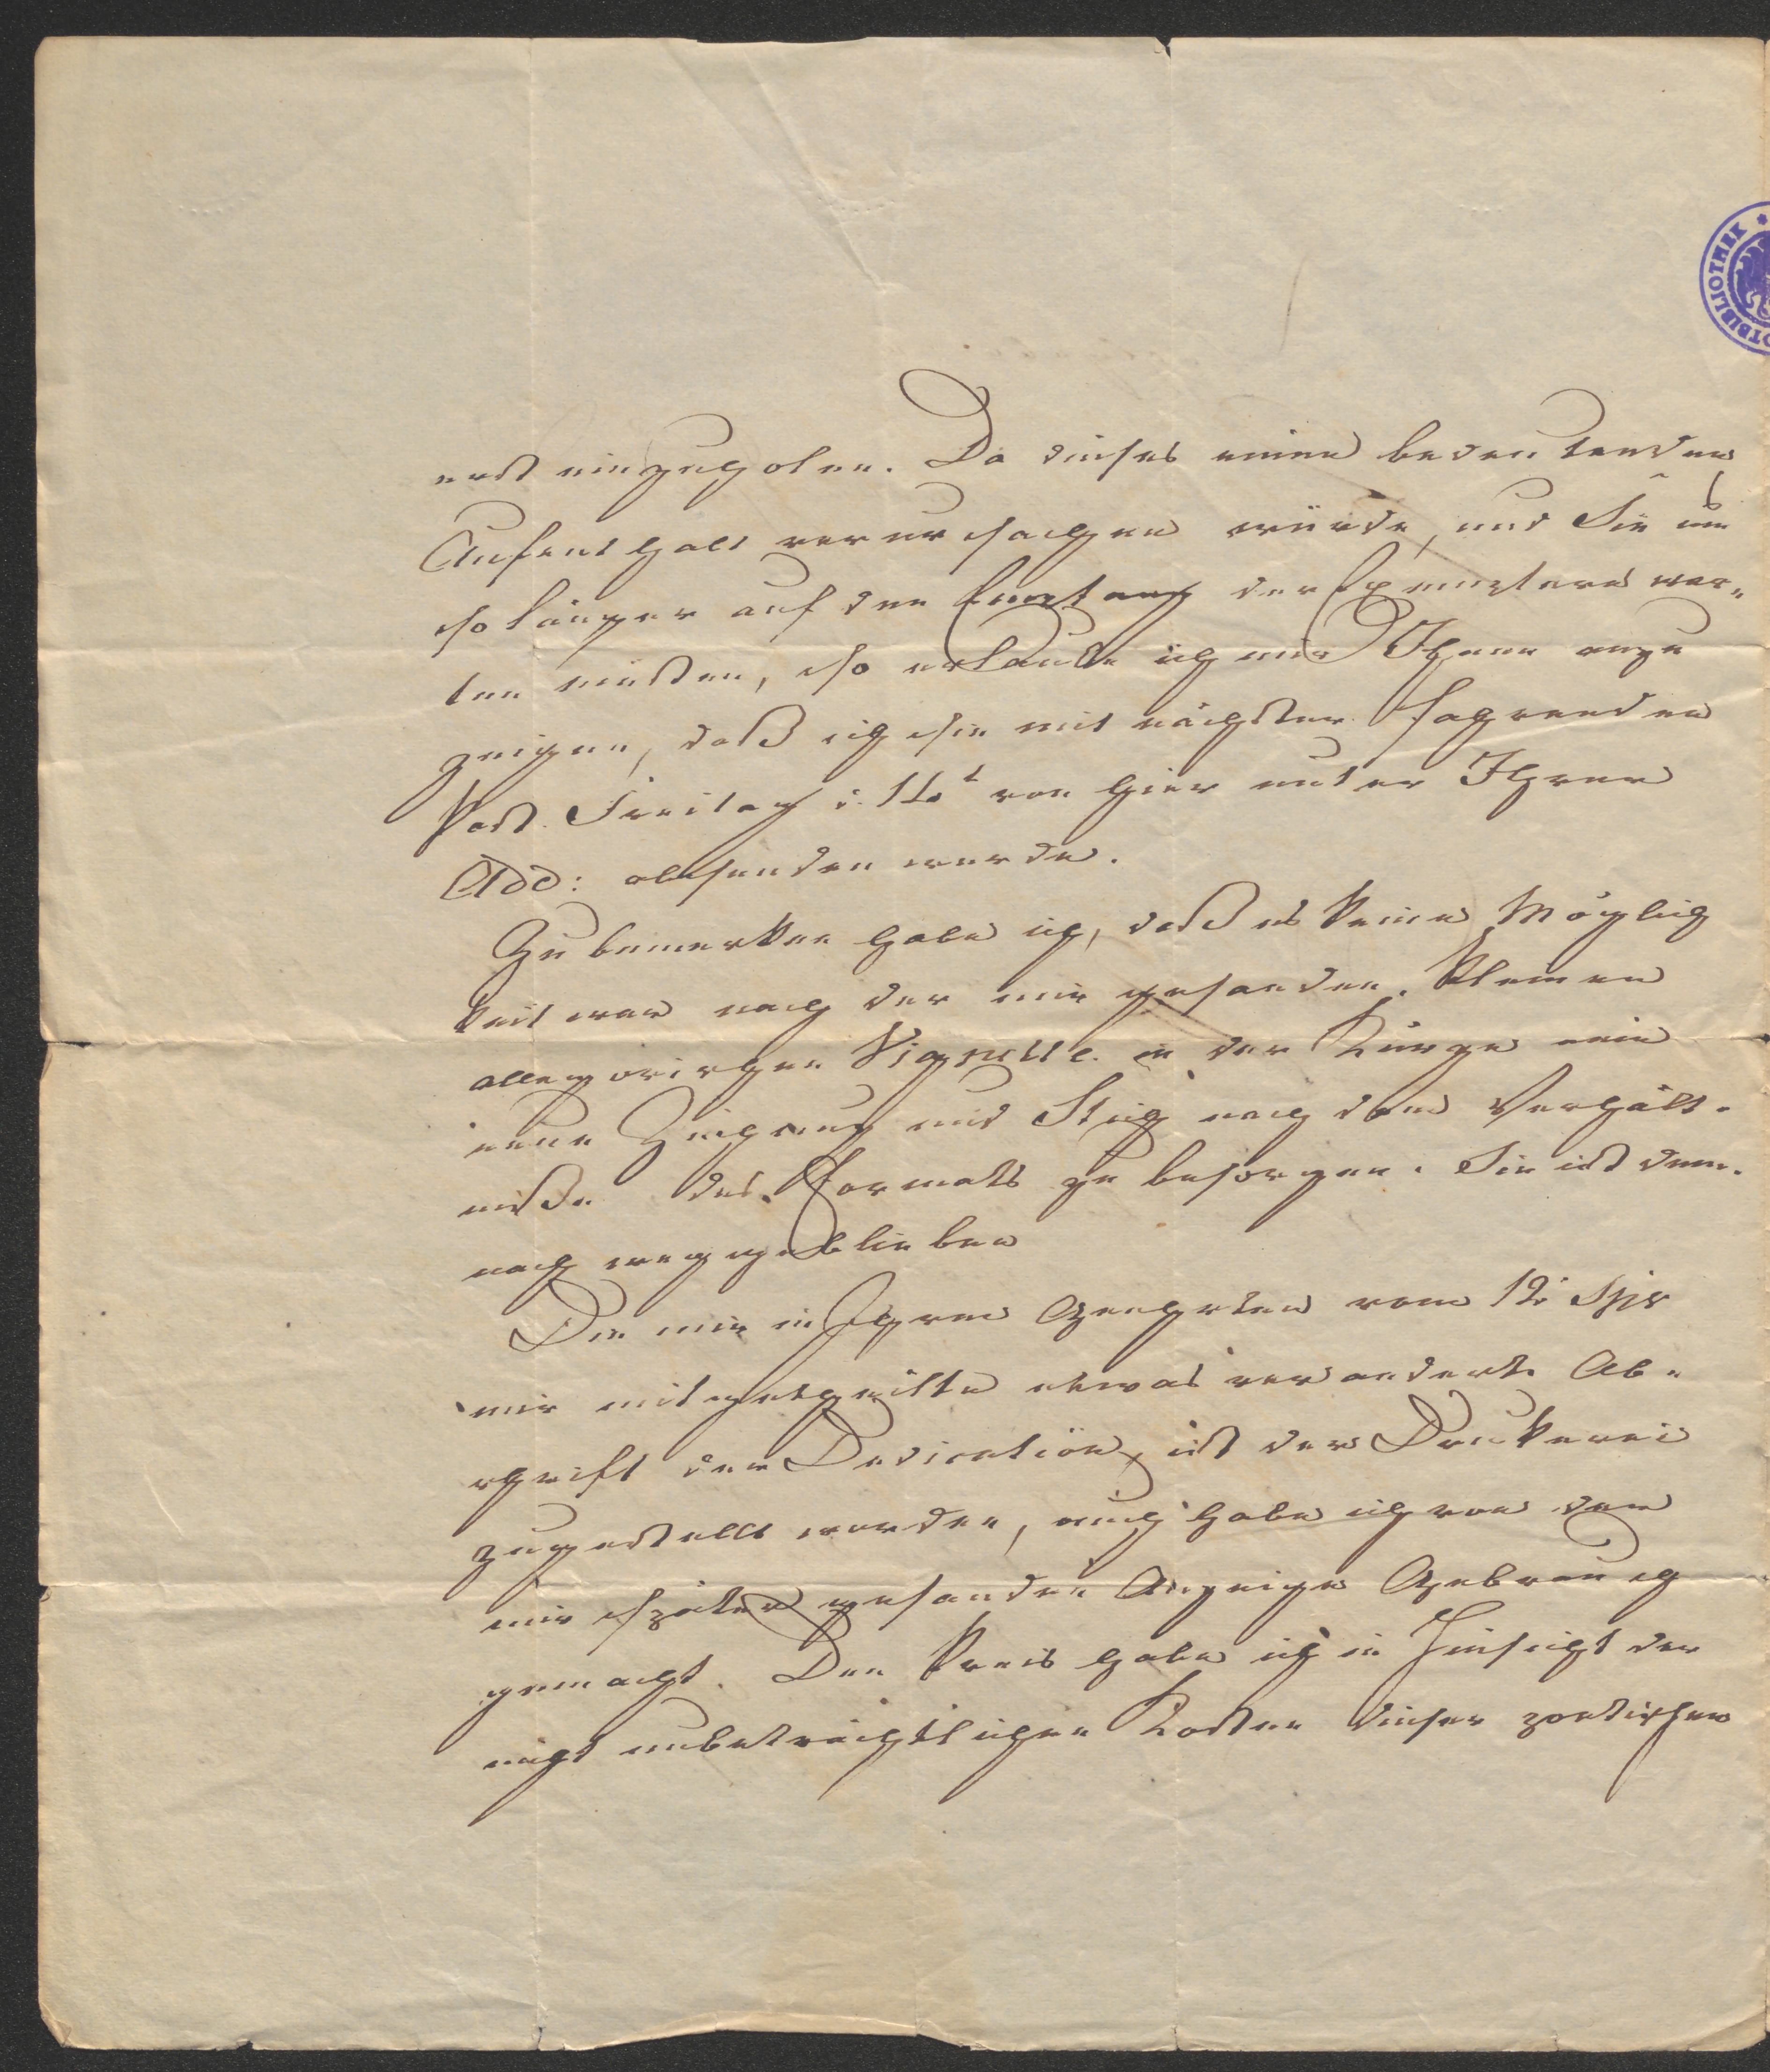 erst einzugholen. Da dieses einen bedeutenden
Aufenthalt verursachen würde, und Sie um
so länger auf den Empfang der Exemplare war„
ten müßten, so erlaube ich mir Ihnen anzu
zeigen, daß ich sie mit nächster fahrenden
Post Freitag d. 16t von hier unter Ihrer
Add: absenden werde.
Zu bemerken habe ich, daß es keine Möglich
keit war nach der mir gesanden kleinen
allegorischen Vignette in der Kürze eine
neue Zeichnung und Stich nach dem Verhält-
niße des Formats zu besorgen. Sie ist dem-
nach weggeblieben
Die mir in Ihrem Geehrten vom 12
mir mitgetheilte etwas veränderte Ab-
schrift der Dedication, ist der Druckerei
zugestellt worden, auch habe ich von der
mir später gesanden Anzeige Gebrauch
gemacht. Den Preis habe ich in Hinsicht der
nicht unbeträchtlichen Kosten dieser poetischen
OTBIBLIOTHEK